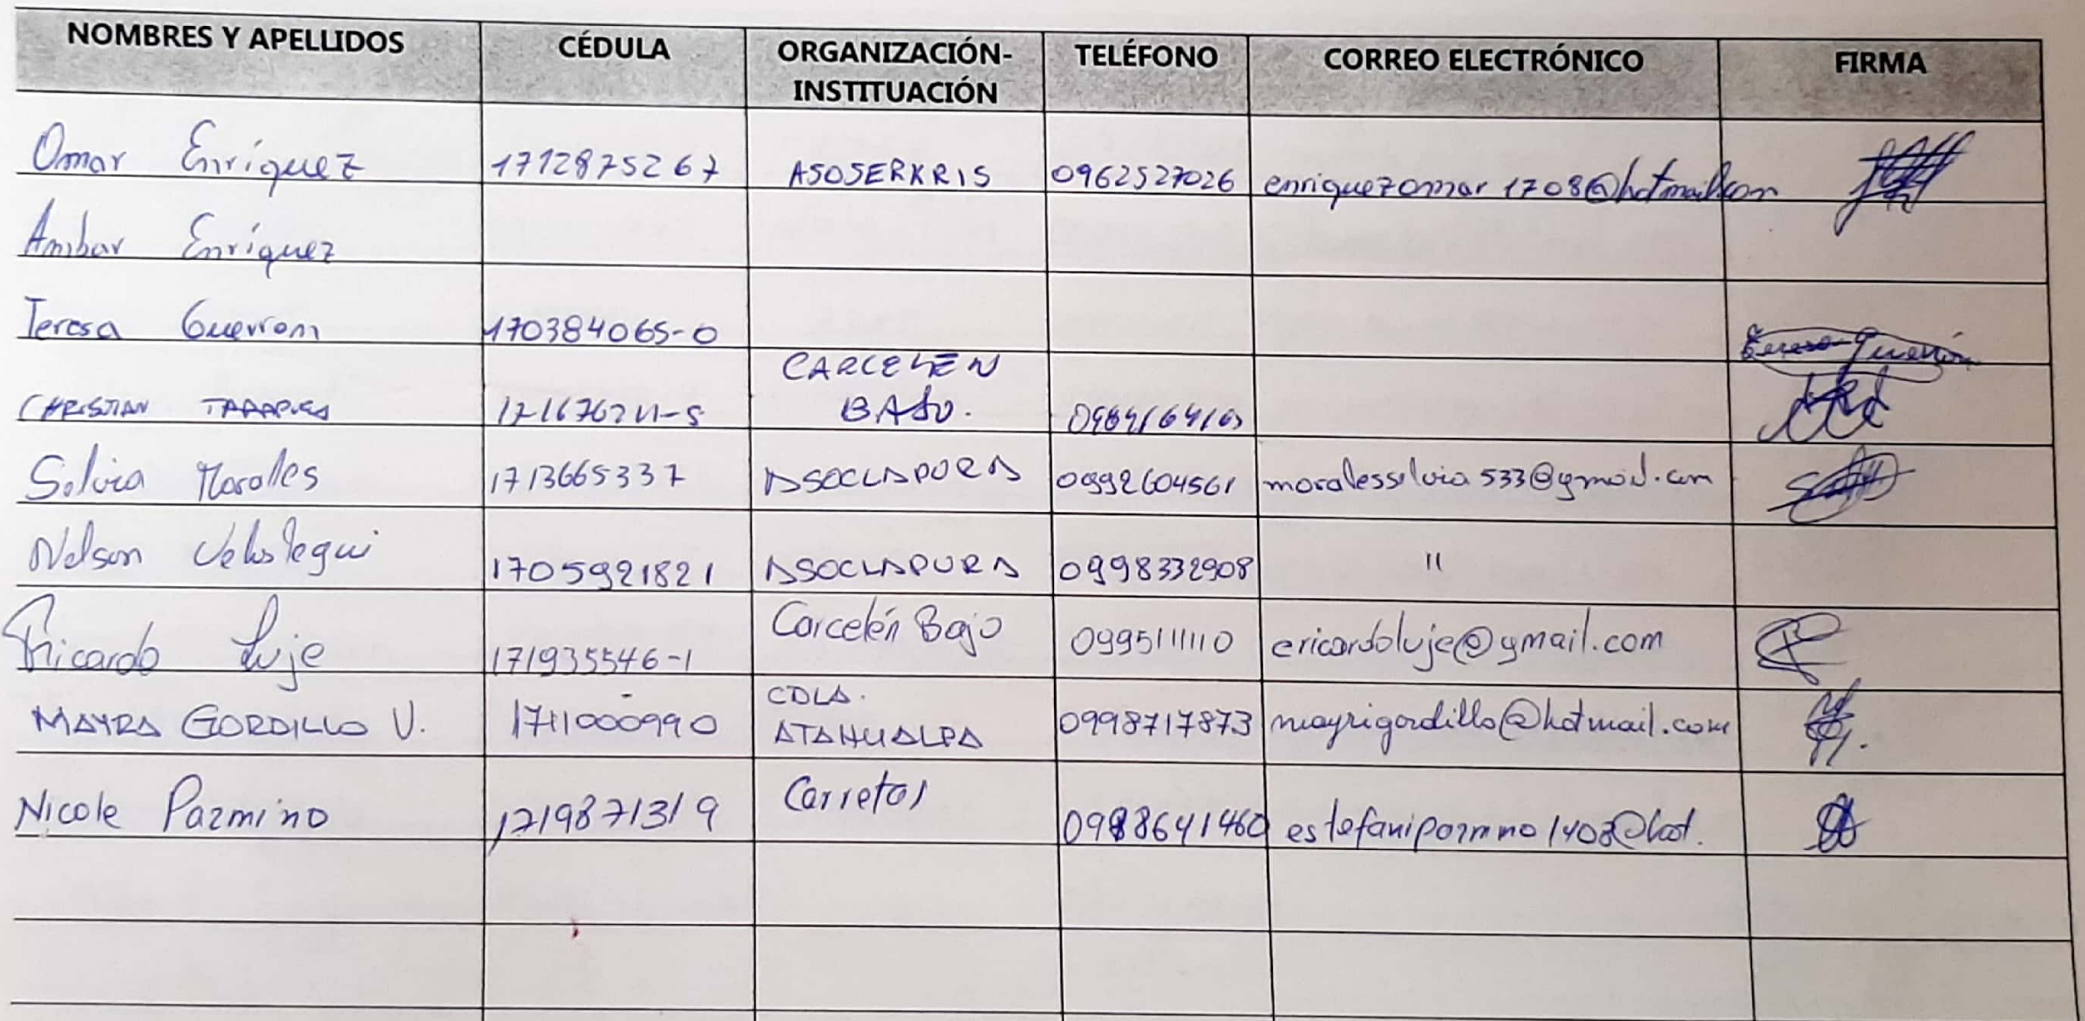 NOMBRES Y APELLIDOS CÉDULA ORGANIZACIÓN-INSTITUACIÓN TELÉFONO CORREO ELECTRÓNICO FIRMA
Omar Enríquez 1712875267 ASOSERKRIS 0962527026 enriquezomar1708@hotmail.com
Ambar Enríquez
Teresa Guerron 170384065-0 Teresa Guerrón
CHRISTIAN CARCELEN BAJO.
Silvia Morales 1713665337 ASOCLAPURA 0992604561 moralessilvia533@gmail.com
Nelson Velastegui 1705921821 ASOCLAPURA 0998332908 "
Ricardo Luje 171935546-1 Carcelén Bajo 0995111110 ericardoluje@gmail.com
MAYRA GORDILLO V. 1711000990 CDLA. ATAHUALPA 0998717873 mayrigordillo@hotmail.com
Nicole Pazmino 1719871319 Carretas 0998641460 estefanipazmino1408@hot.